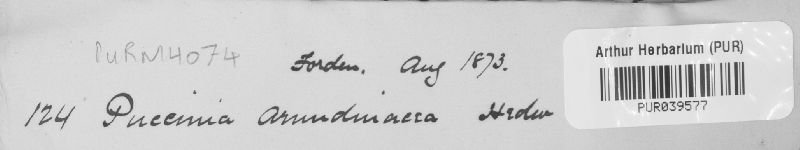 PURN4074
Forden. Aug 1873.
124 Puccinia arundinacea Hedw
Arthur Herbarium (PUR)
PUR039577